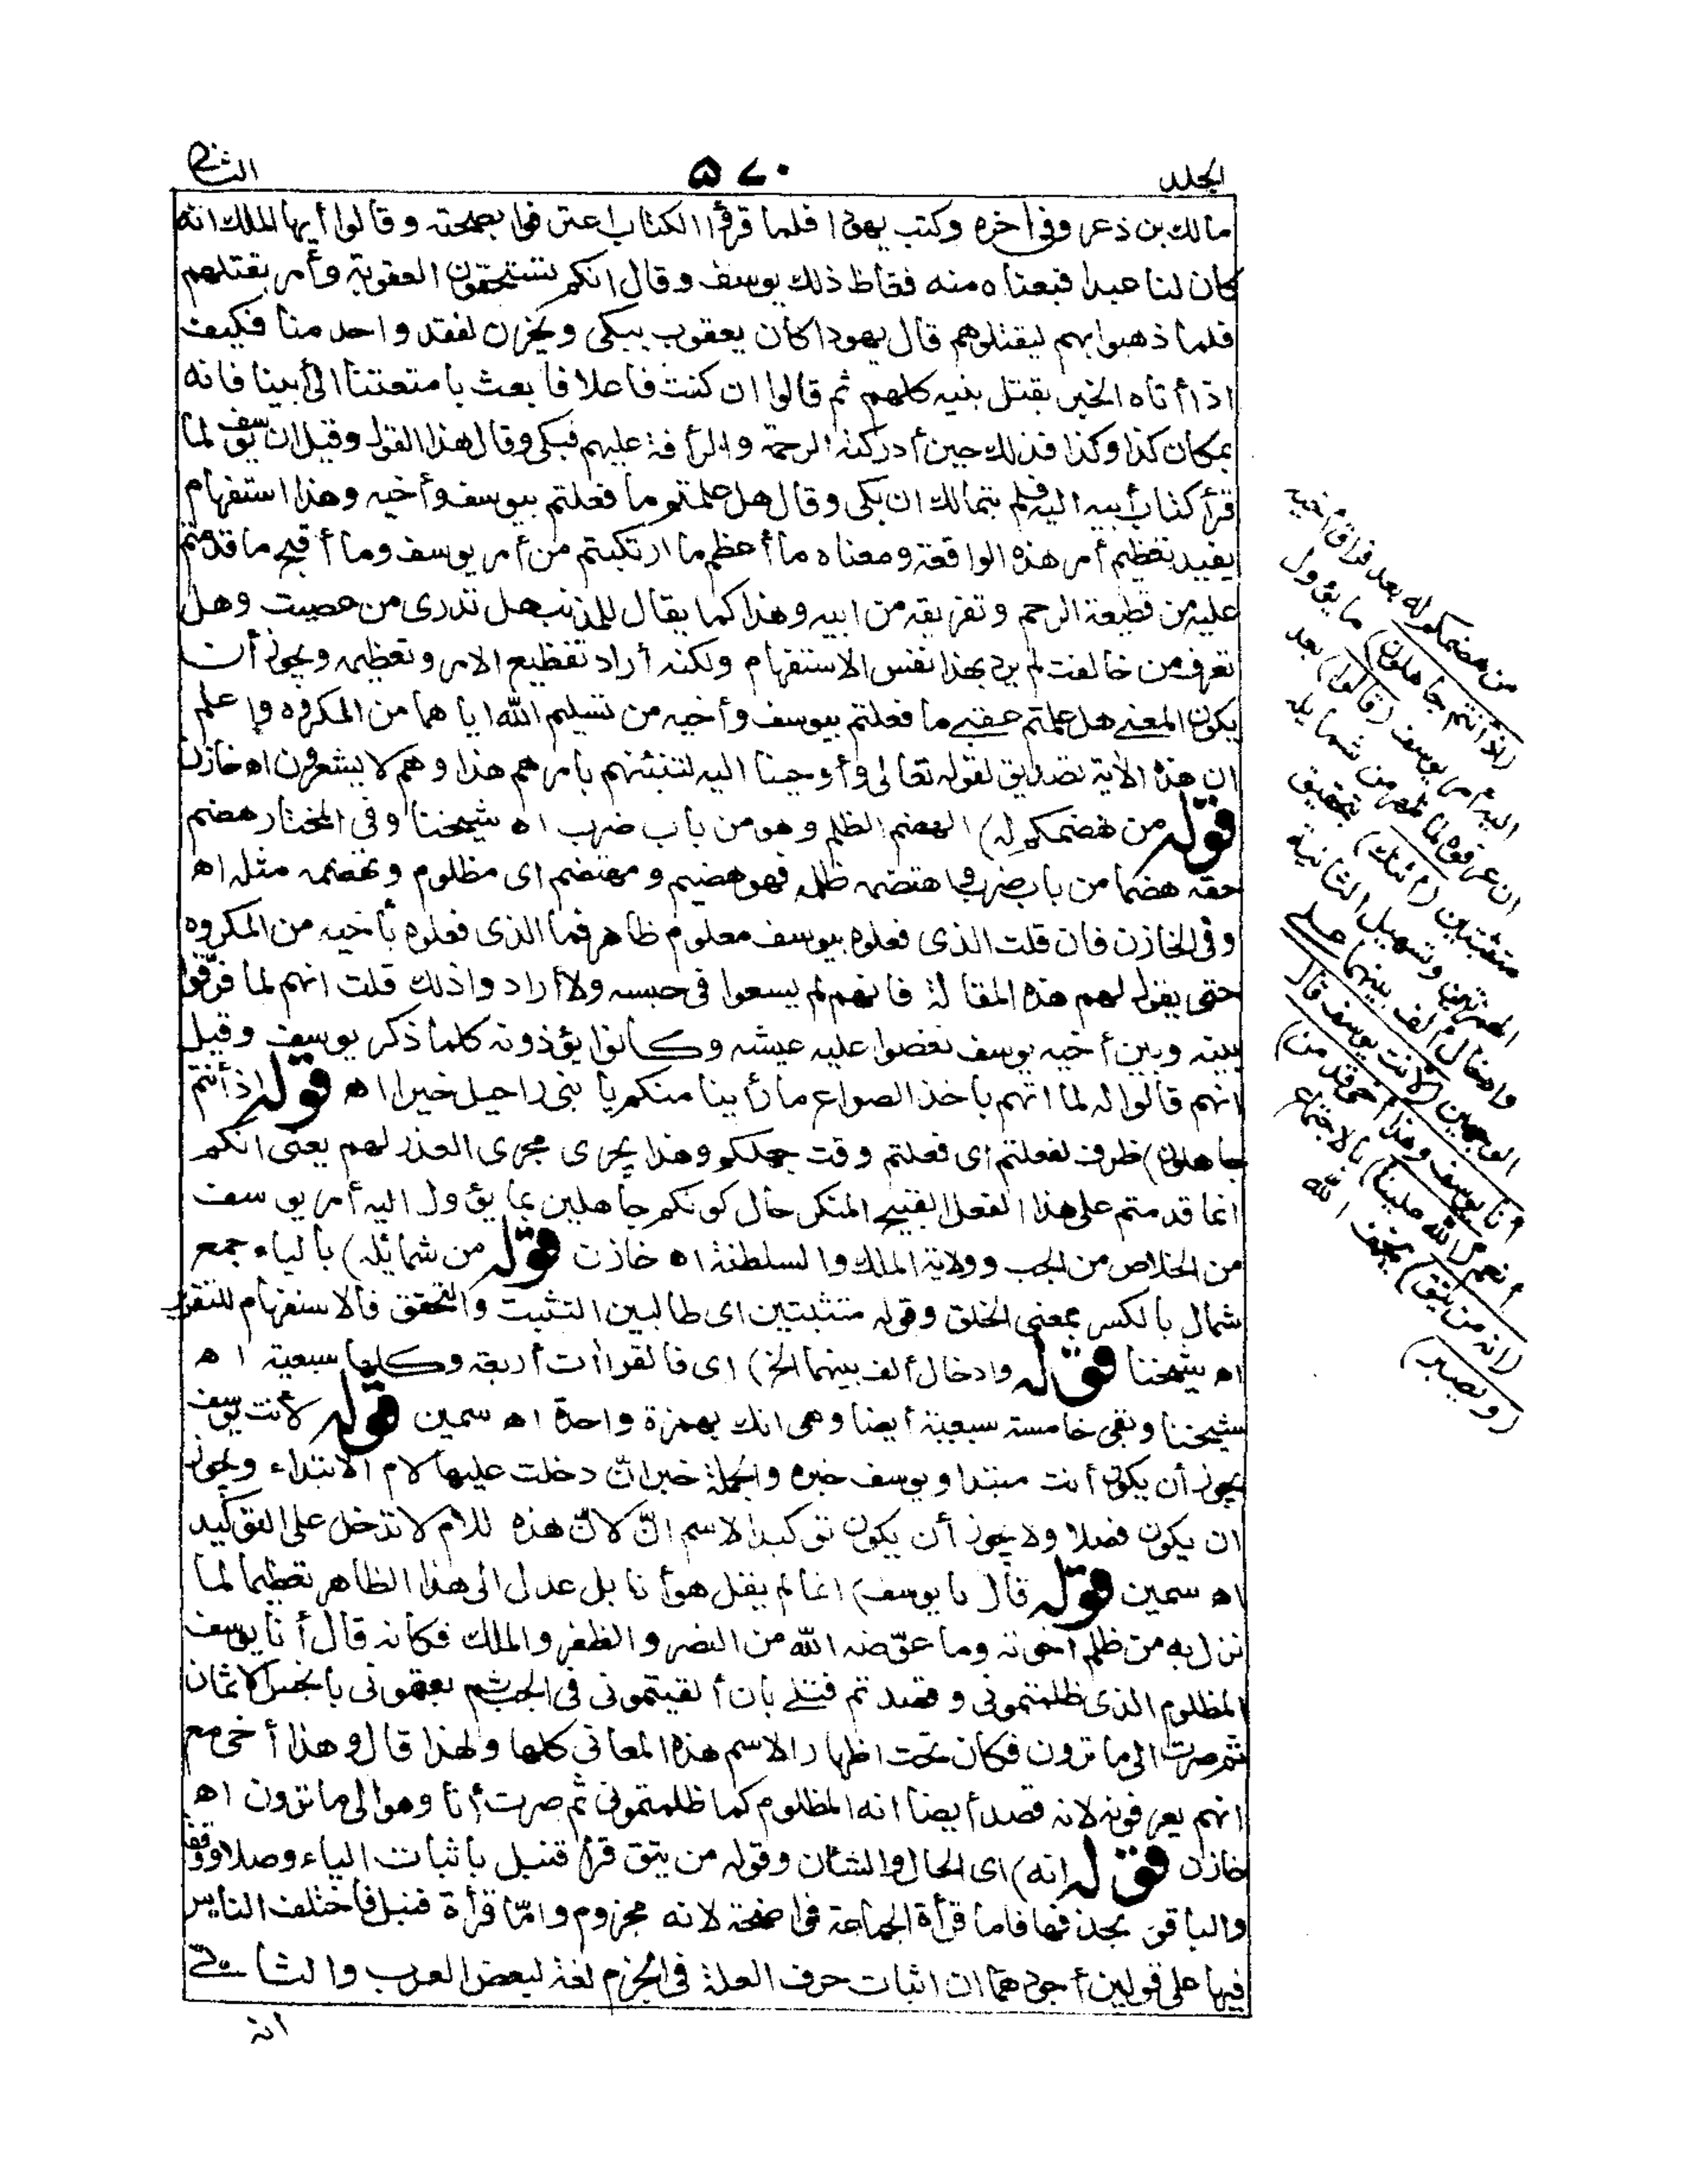 الجلد ٥٧٠ الثانى
مالك بن ذعر وفى آخره وكتب يهوذا فلما قرؤا الكتاب اعترفوا بصحته وقالوا أيها الملك انه
كان لنا عبدا فبعناه منه فغاظ ذلك يوسف وقال انكم تستحقون العقوبة وأمر بقتلهم
فلما ذهبوا بهم ليقتلوهم قال يهودا كان يعقوب يبكى ويحزن لفقد واحد منا فكيف
اذا أتاه الخبر بقتل بنيه كلهم ثم قالوا ان كنت فاعلا فابعث بامتعتنا الى أبينا فانه
بمكان كذا وكذا فذلك حين أدركته الرحمة والرأفة عليهم فبكى وقال هذا القول وقيل ان يوسف لما
قرأ كتاب أبيه اليه فلم يتمالك ان بكى وقال هل علمتم ما فعلتم بيوسف وأخيه وهذا استفهام
يفيد تعظيم أمر هذه الواقعة ومعناه ما أعظم ما ارتكبتم من أمر يوسف وما أقبح ما قدمتم
عليه من قطيعة الرحم وتفريقه من ابيه وهذا كما يقال للمذنب هل تدرى من عصيت وهل
تعرف من خالفت لم يرد بهذا نفس الاستفهام ولكنه أراد تفظيع الامر وتعظيمه ويجوز أن
يكون المعنى هل علمتم عقبى ما فعلتم بيوسف وأخيه من تسليم الله اياهما من المكروه وإعلم
ان هذه الآية تصديق لقوله تعالى وأوحينا اليه لتنبئنهم بامرهم هذا وهم لا يشعرون اه خازن
قوله من هضمكم له) الهضم الظلم وهو من باب ضرب اه شيخنا وفى المختار هضم
حقه هضما من باب ضرب واهتضمه ظلمه فهو هضيم ومهتضم اى مظلوم وتهضمه مثله اه
وفى الخازن فان قلت الذى فعلوه بيوسف معلوم ظاهر فما الذى فعلوه بأخيه من المكروه
حتى يقول لهم هذه المقالة فانهم لم يسعوا فى حبسه ولا أرادوا ذلك قلت انهم لما فرّقوا
بينه وبين أخيه يوسف نغصوا عليه عيشه وكانوا يؤذونه كلما ذكر يوسف وقيل
انهم قالوا له لما اتهم باخذ الصواع ما رأينا منكم يا بنى راحيل خيرا اه قوله اذ أنتم
جاهلون) ظرف لفعلتم اى فعلتم وقت جهلكم وهذا يجرى مجرى العذر لهم يعنى انكم
انما قدمتم على هذا الفعل القبيح المنكر حال كونكم جاهلين بما يؤول اليه أمر يوسف
من الخلاص من الجب وولاية الملك والسلطنة اه خازن قوله من شمائله) بالياء جمع
شمال بالكسر بمعنى الخلق وقوله متثبتين اى طالبين التثبت والتحقق فالاستفهام للتقرير
اه شيخنا قوله وادخال ألف بينهما الخ) اى فالقراأت أربعة وكلها سبعية اه
شيخنا وبقى خامسة سبعية أيضا وهى انك بهمزة واحدة اه سمين قوله لأنت يوسف
يجوز أن يكون أنت مبتدا ويوسف خبره والجملة خبر انّ دخلت عليها لام الابتداء ويجوز
ان يكون فصلا ولا يجوز أن يكون توكيدا لاسم انّ لانّ هذه اللام لا تدخل على التوكيد
اه سمين قوله قال انا يوسف) انما لم يقل هو أنا بل عدل الى هذا الظاهر تعظيما لما
نزل به من ظلم اخوته وما عوّضه الله من النصر والظفر والملك فكانه قال أنا يوسف
المظلوم الذى ظلمتمونى وقصدتم قتلى بان ألقيتمونى فى الجب ثم بعتمونى بابخس الاثمان
ثم صرت الى ما ترون فكان تحت اظهار الاسم هذه المعانى كلها ولهذا قال وهذا أخى مع
انهم يعرفونه لانه قصد أيضا انه المظلوم كما ظلمتمونى ثم صرت أنا وهو الى ما ترون اه
خازن قوله انه) اى الحال والشان وقوله من يتق قرأ قنبل باثبات الياء وصلا ووقفا
والباقون بحذفها فاما قرأة الجماعة فواضحة لانه مجزوم وامّا قرأة قنبل فاختلف الناس
فيها على قولين أجودهما ان اثبات حرف العلة فى الجزم لغة لبعض العرب والثانى
انه
من هضمكم له بعد فراق أخيه
(اذ أنتم جاهلون) ما يؤول
اليه أمر يوسف (قالوا) بعد
ان عرفوه لما ظهر من شمايله
متثبتين (أئنك) بتحقيق
الهمزتين وتسهيل الثانية
وادخال ألف بينهما على
الوجهين (لانت يوسف قال
أنا يوسف وهذا أخى قد من)
أنعم (الله علينا) بالاجتماع
(انه من يتق) يخف الله
(ويصبر)